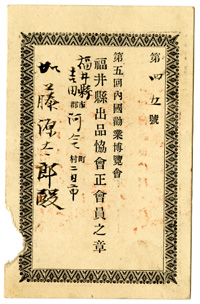 第四五號
第五回內國勸業博覽會
福井縣出品協會正會員之章
福井縣 市
吉田郡 町村
加藤源太郎殿